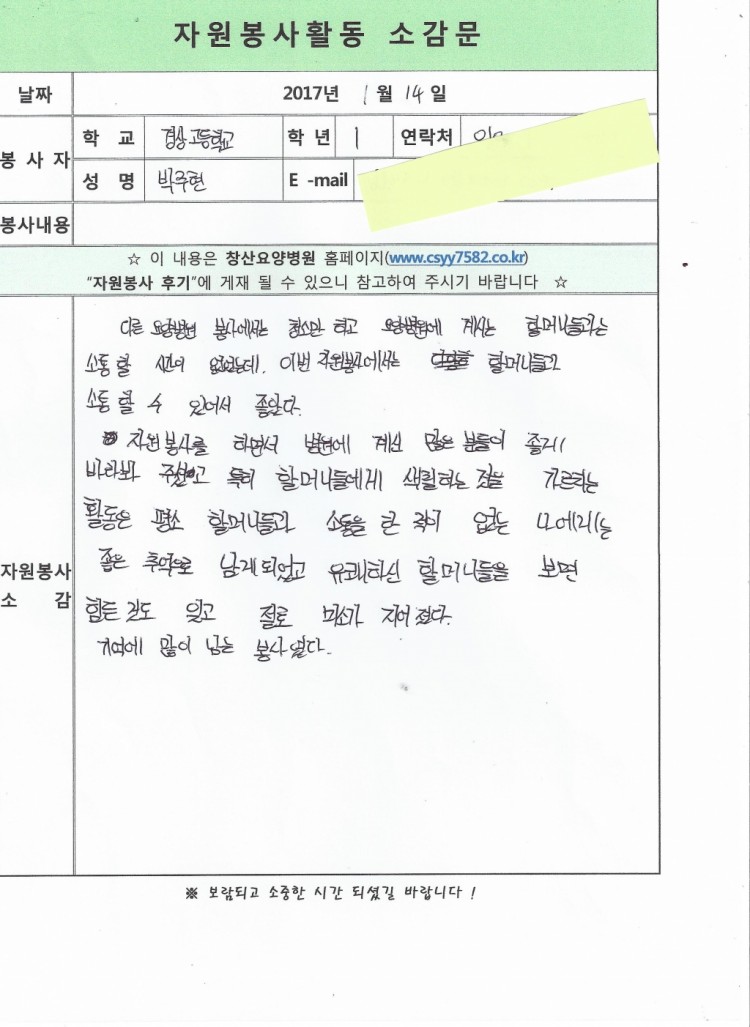 자원봉사활동 소감문
날짜 2017년 1월 14일
봉사자 학교 경상고등학교 학년 1 연락처
성명 박주현 E-mail
봉사내용
☆ 이 내용은 창산요양병원 홈페이지(www.csyy7582.co.kr)
"자원봉사 후기"에 게재 될 수 있으니 참고하여 주시기 바랍니다 ☆
자원봉사 소감
다른 요양병원 봉사에서는 청소만 하고 요양병원에 계시는 할머니들과는
소통 할 시간이 없었는데, 이번 자원봉사에서는 할머니들과
소통 할 수 있어서 좋았다.
자원봉사를 하면서 병원에 계신 많은 분들이 좋게
바라봐 주셨고 특히 할머니들에게 색칠하는 것을 가르치는
활동은 평소 할머니들과 소통을 한 적이 없는 나에게는
좋은 추억으로 남게 되었고 유쾌하신 할머니들을 보면
힘든 것도 잊고 절로 미소가 지어 졌다.
기억에 많이 남는 봉사 였다.
※ 보람되고 소중한 시간 되셨길 바랍니다 !